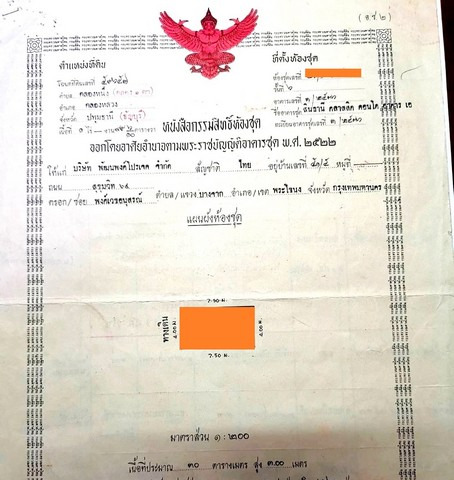 (อ.ช.๒)
ตำแหน่งที่ดิน
โฉนดที่ดินเลขที่
ตำบล คลองหนึ่ง
อำเภอ คลองหลวง
จังหวัด ปทุมธานี (ธัญบุรี)
เนื้อที่ ๑ ไร่ – งาน ตารางวา
ที่ตั้งห้องชุด
ห้องชุดเลขที่
ชั้นที่
อาคารเลขที่ ๓/๒๕๓๗
ชื่ออาคารชุด คลาสสิค คอนโด อาคาร เอ
ทะเบียนอาคารชุดเลขที่ ๓/๒๕๓๗
หนังสือกรรมสิทธิ์ห้องชุด
ออกโดยอาศัยอำนาจตามพระราชบัญญัติอาคารชุด พ.ศ. ๒๕๒๒
ให้แก่ บริษัท พัฒนพงศ์โปรเจค จำกัด สัญชาติ ไทย อยู่บ้านเลขที่ ๕๑/๕ หมู่ที่
ถนน สุขุมวิท ๖๔ ตำบล/แขวง บางจาก อำเภอ/เขต พระโขนง จังหวัด กรุงเทพมหานคร
ตรอก/ซอย พงศ์เวชอนุสรณ์
แผนผังห้องชุด
7.50 ม.
ทางเดิน
4.00 ม.
4.00 ม.
7.50 ม.
มาตราส่วน ๑ : ๒๐๐
เนื้อที่ประมาณ ๓๐ ตารางเมตร สูง ๓.๐๐ เมตร